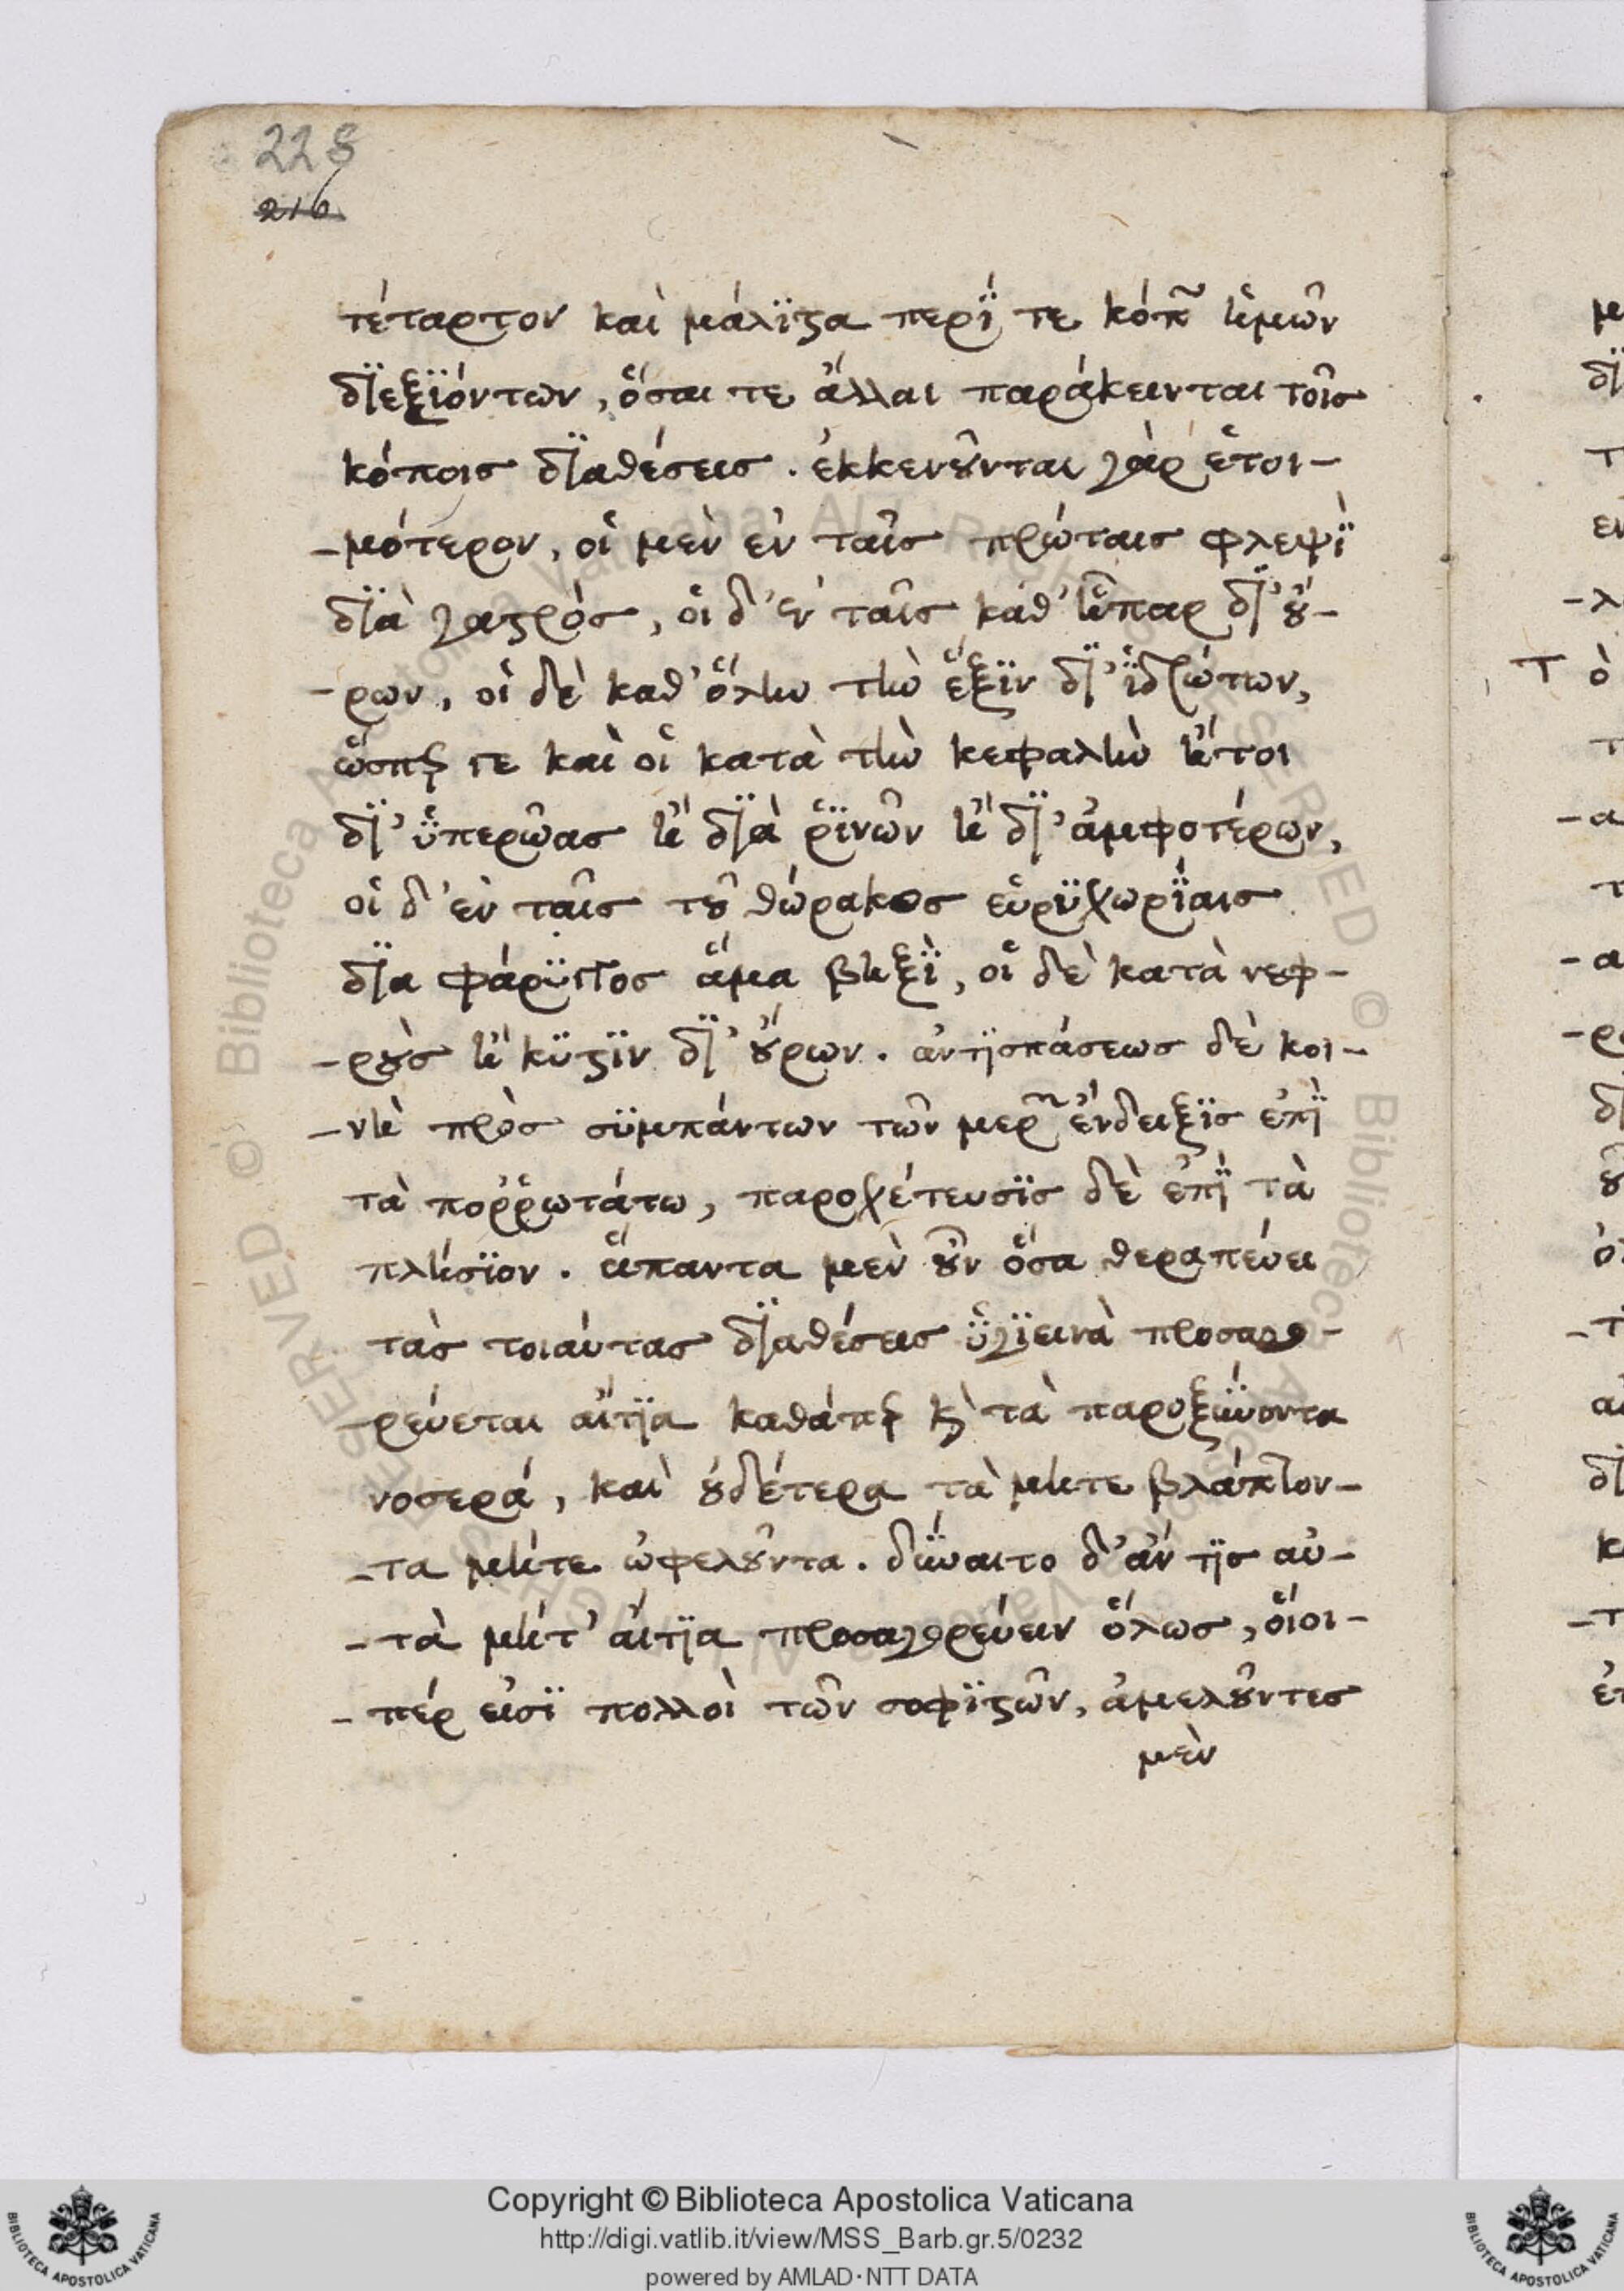 228
216
τέταρτον καὶ μάλϊϛα περΐ τε κόπ῀ ἡμῶν
δϊεξϊόντων, ὅσαι τε ἄλλαι παράκεινται τοῖσ
κόποισ δϊαθέσεισ. ἐκκενȣ͂νται γὰρ ἑτοι-
-μότερον, οἱ μεν ἐν ταῖσ πρώταισ φλεψϊ
δϊὰ γαϛρόσ, οἱ δ' ἐν ταῖσ καθ' ἧπαρ δϊ' ȣ̓́-
-ρων, οἱ δὲ καθ' ὅλην τὴν ἕξϊν δϊ' ἱδρώτων,
ὥσπερ τε καὶ οἱ κατὰ τὴν κεφαλὴν ἤτοι
δϊ' ὑπερῶασ ἢ δϊὰ ῥϊνῶν ἢ δϊ' ἀμφοτέρων,
οἱ δ' ἐν ταῖσ τȣ͂ θώρακοσ εὐρϋχωρΐαισ
δϊα φάρϋγγοσ ἅμα βηξϊ, οἱ δὲ κατὰ νεφ-
-ρȣ̀σ ἢ κϋϛϊν δϊ' ȣ̓́ρων. ἀντϊσπάσεωσ δὲ κοι-
-νὴ πρὸσ σϋμπάντων τῶν μερ῀ ἔνδειξϊσ ἐπϊ
τὰ πορῥωτάτω, παροχέτευσϊσ δὲ ἐπϊ τὰ
πλήσϊον. ἅπαντα μεν ȣ̓͂ν ὅσα θεραπεύει
τὰσ τοιαύτασ δϊαθέσεισ ὑγϊεινὰ προσαγο-
-ρεύεται αἴτϊα καθάπερ κ̀ τὰ παροξΰνοντα
νοσερά, καὶ ȣ̓δέτερα τὰ μήτε βλάπτον-
-τα μήτε ὠφελȣ͂ντα. δΰναιτο δ' ἄν τϊσ αὐ-
-τὰ μήτ' αἴτϊα προσαγορεύειν ὅλωσ, οἵοι-
-πέρ εἰσϊ πολλοὶ τῶν σοφϊϛῶν, ἀμελȣ͂ντεσ
μὲν
Copyright © Biblioteca Apostolica Vaticana
http://digi.vatlib.it/view/MSS_Barb.gr.5/0232
powered by AMLAD·NTT DATA